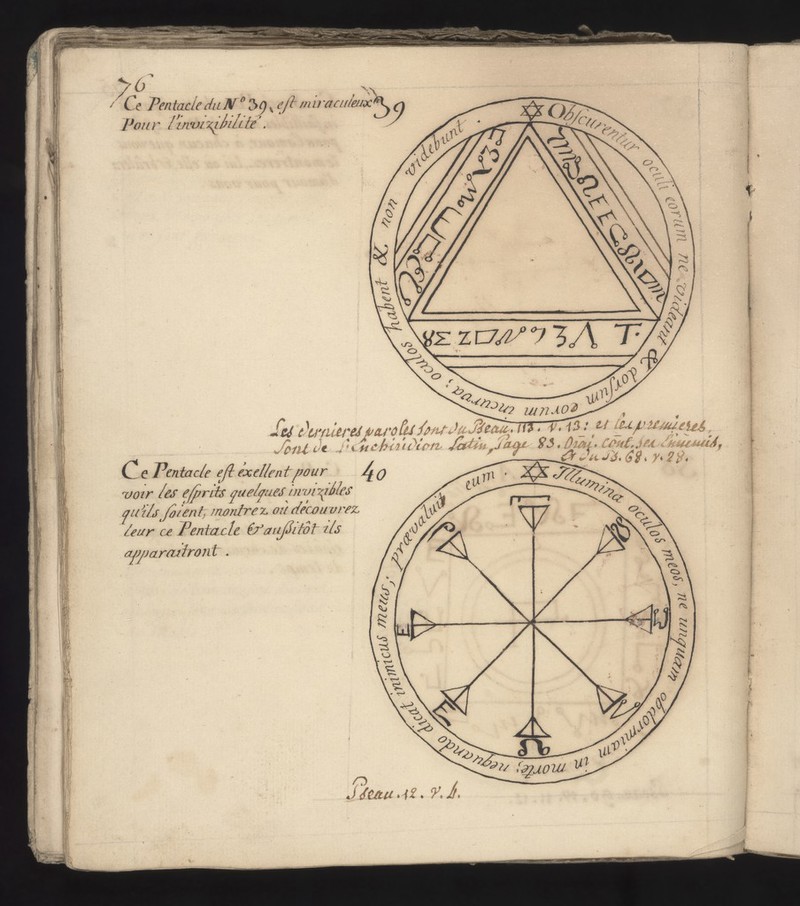 76
Ce Pentacle du N° 39, est miraculeux
Pour l'invizibilité.
39
Obscurentur oculi eorum ne videant & dorsum eorum incurva; oculos habent & non videbunt.
Les dernieres paroles sont du Pseau. 113. v. 13: et les premieres
sont de l'Enchiridion Latin, Page 83. Orai. cont. ses Ennemis,
Et du Ps. 68. v. 28.
Ce Pentacle est éxellent pour
voir les esprits quelques invizibles
qu'ils soient, montrez, où découvrez
leur ce Pentacle & aussitôt ils
apparaitront.
40
Illumina oculos meos, ne unquam obdormiam in morte; nequando dicat inimicus meus; prævaluit eum.
Pseau. 12. v. 4.